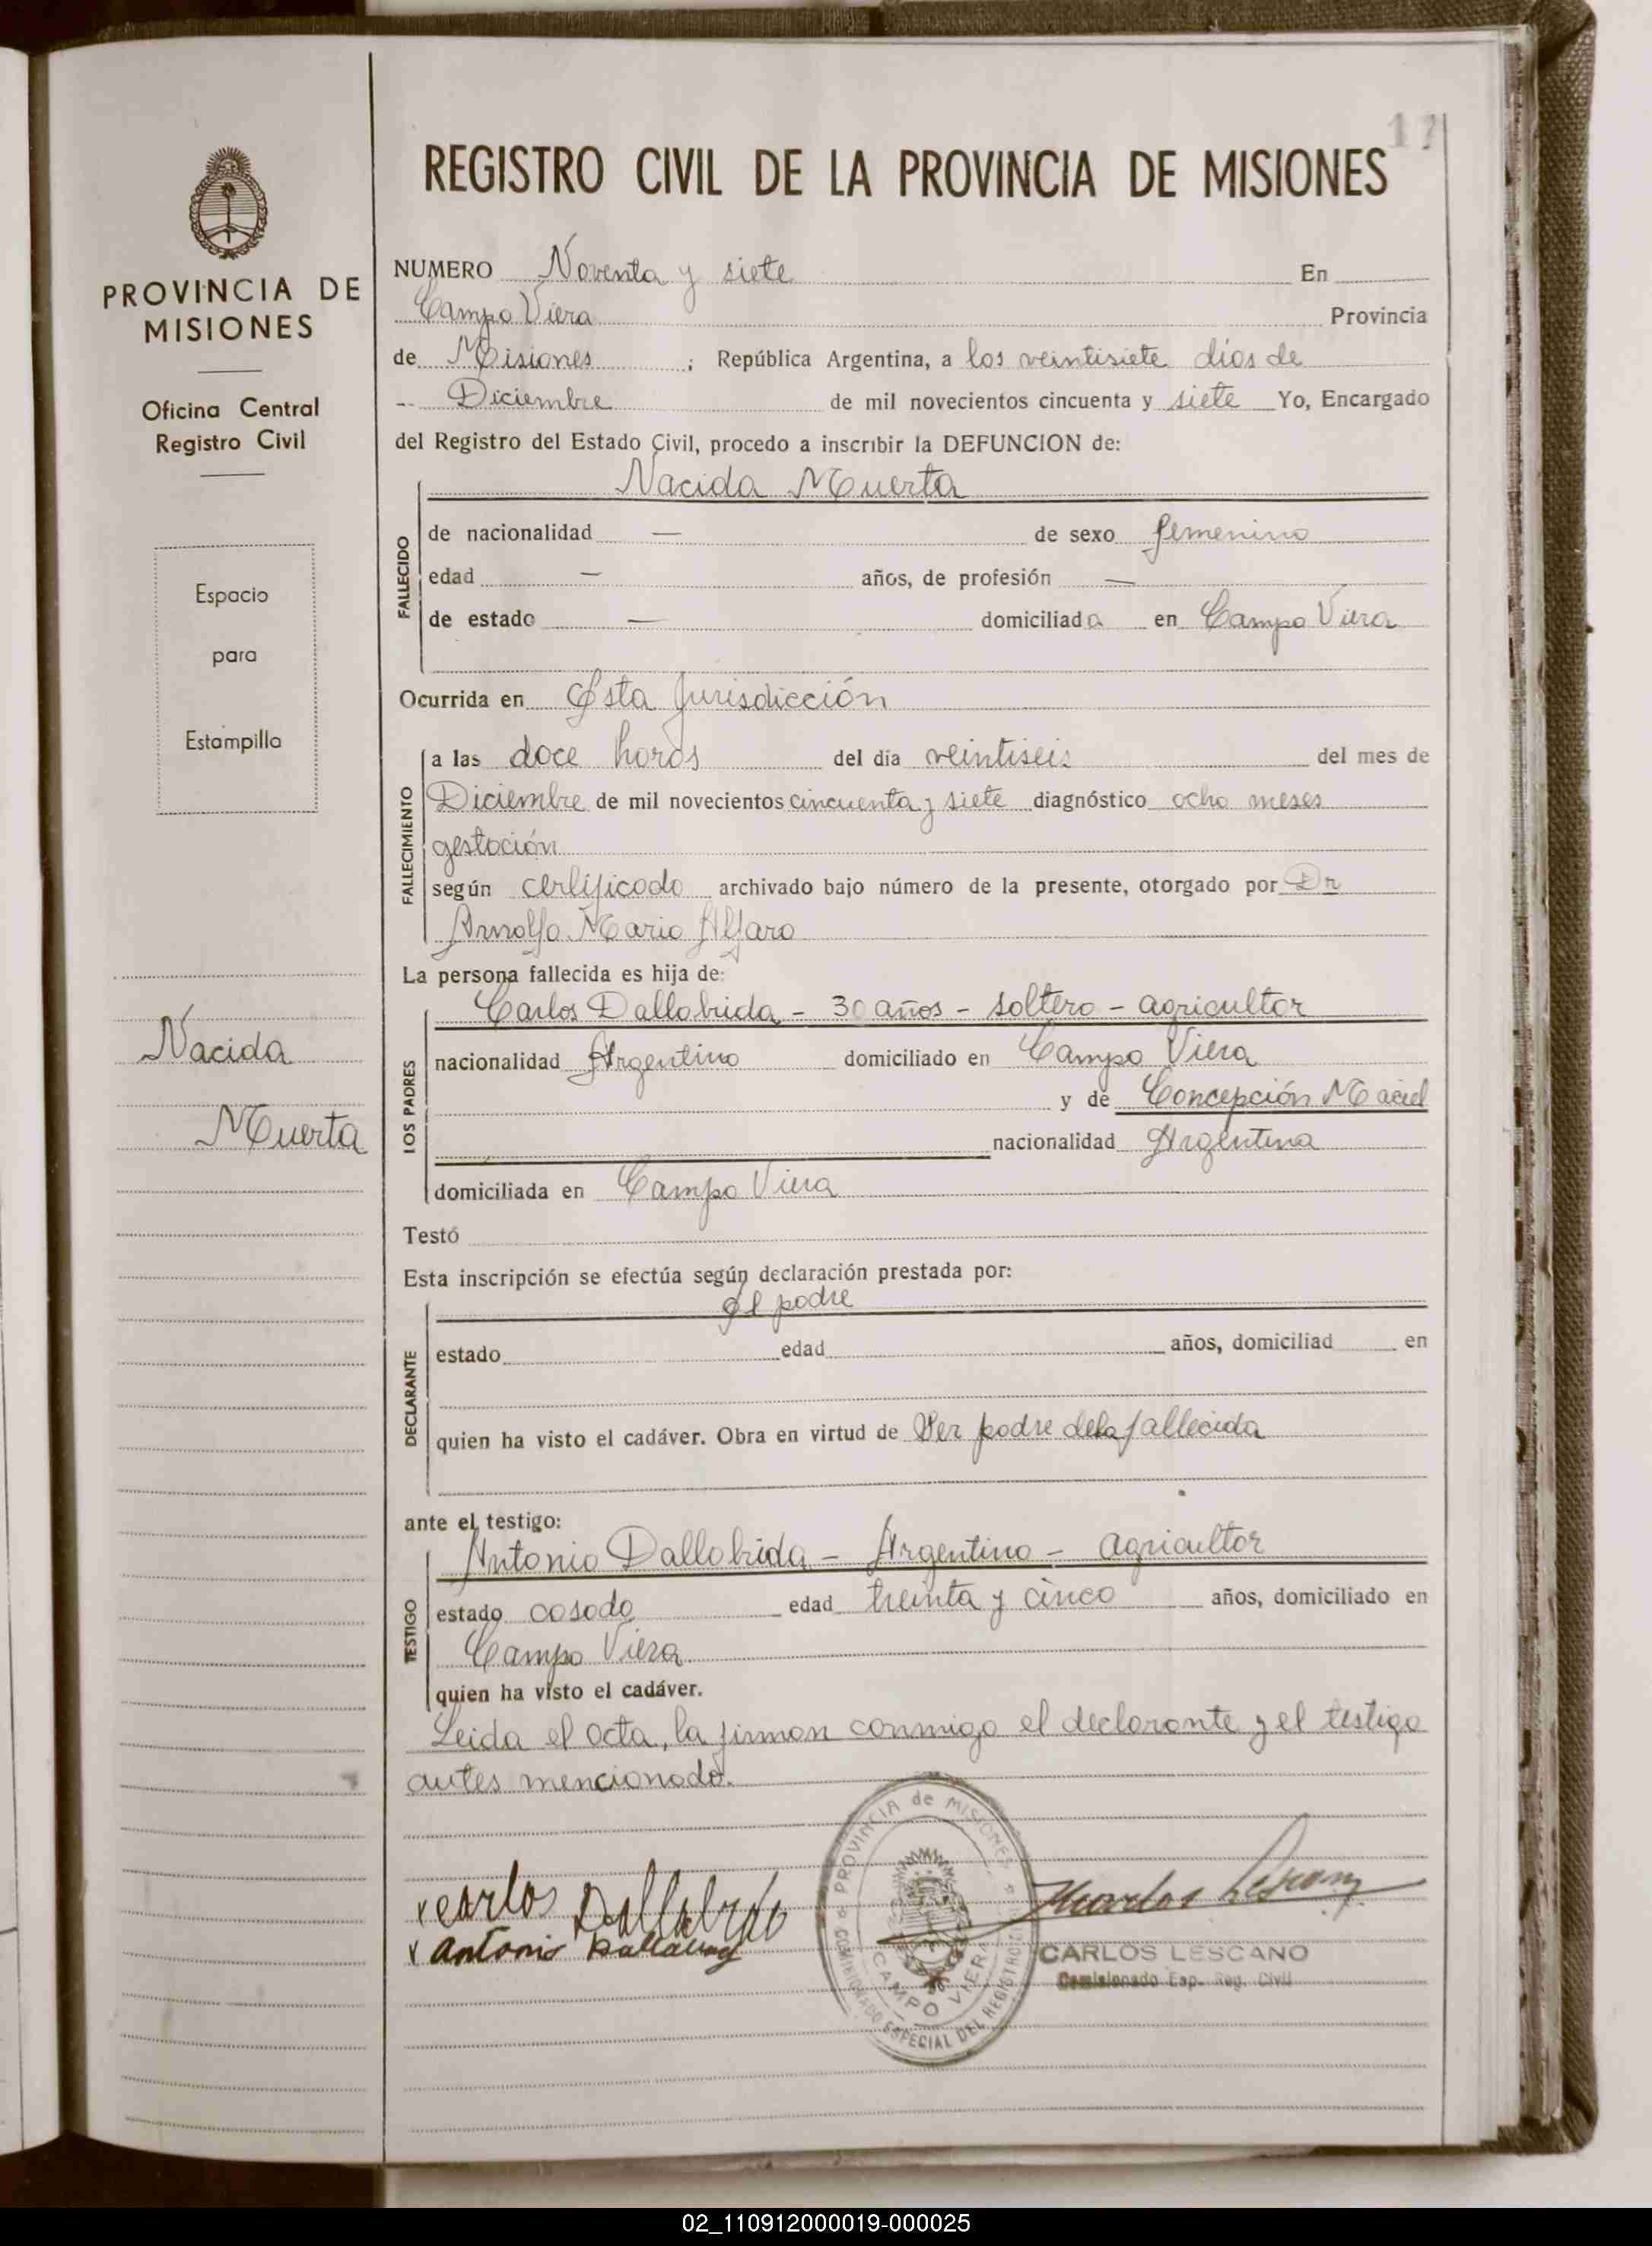 17
PROVINCIA DE
MISIONES
Oficina Central
Registro Civil
Espacio
para
Estampilla
Nacida
Muerta
REGISTRO CIVIL DE LA PROVINCIA DE MISIONES
NUMERO Noventa y siete En
Campo Viera Provincia
de Misiones ; República Argentina, a los veintisiete días de
Diciembre de mil novecientos cincuenta y siete Yo, Encargado
del Registro del Estado Civil, procedo a inscribir la DEFUNCION de:
Nacida Muerta
FALLECIDO
de nacionalidad — de sexo femenino
edad — años, de profesión —
de estado — domiciliada en Campo Viera
Ocurrida en Esta Jurisdicción
FALLECIMIENTO
a las doce horas del día veintiseis del mes de
Diciembre de mil novecientos cincuenta y siete diagnóstico ocho meses
gestación
según certificado archivado bajo número de la presente, otorgado por Dr
Arnolfo Mario Alfaro
La persona fallecida es hija de:
LOS PADRES
Carlos Dallabrida - 30 años - soltero - agricultor
nacionalidad Argentino domiciliado en Campo Viera
y de Concepción Maciel
nacionalidad Argentina
domiciliada en Campo Viera
Testó
Esta inscripción se efectúa según declaración prestada por:
El padre
DECLARANTE
estado edad años, domiciliad en
quien ha visto el cadáver. Obra en virtud de Ser padre dela fallecida
ante el testigo:
TESTIGO
Antonio Dallabrida - Argentino - agricultor
estado casado edad treinta y cinco años, domiciliado en
Campo Viera
quien ha visto el cadáver.
Leida el acta, la firman conmigo el declarante y el testigo
antes mencionado.
PROVINCIA de MISIONES
CAMPO VIERA
COMISIONADO ESPECIAL DEL REGISTRO
x carlos Dallabrida
x antonio
CARLOS LESCANO
Comisionado Esp. Reg. Civil
02_110912000019-000025